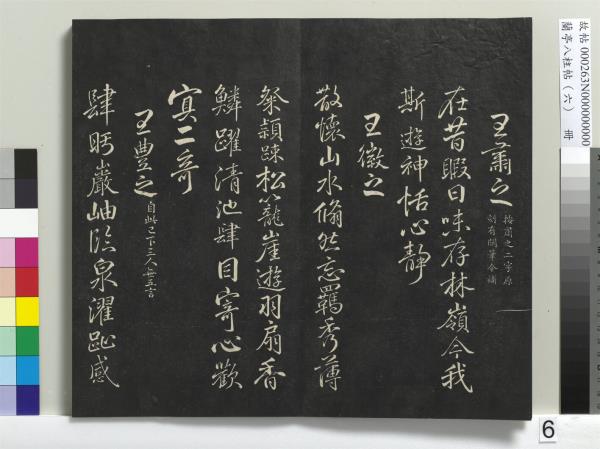 王肅之
按肅之二字原
刻有闕筆今補
在昔暇日味存林嶺今我
斯遊神怡心靜
王徽之
散懷山水翛然忘羈秀薄
粲穎疎松籠崖遊羽扇霄
鱗躍清池肆目寄心歡
寘二奇
王豐之
自此已下三人無五言
肆眄巖岫臨泉濯趾感
故帖 000263N000000000
蘭亭八柱帖（六） 冊
6